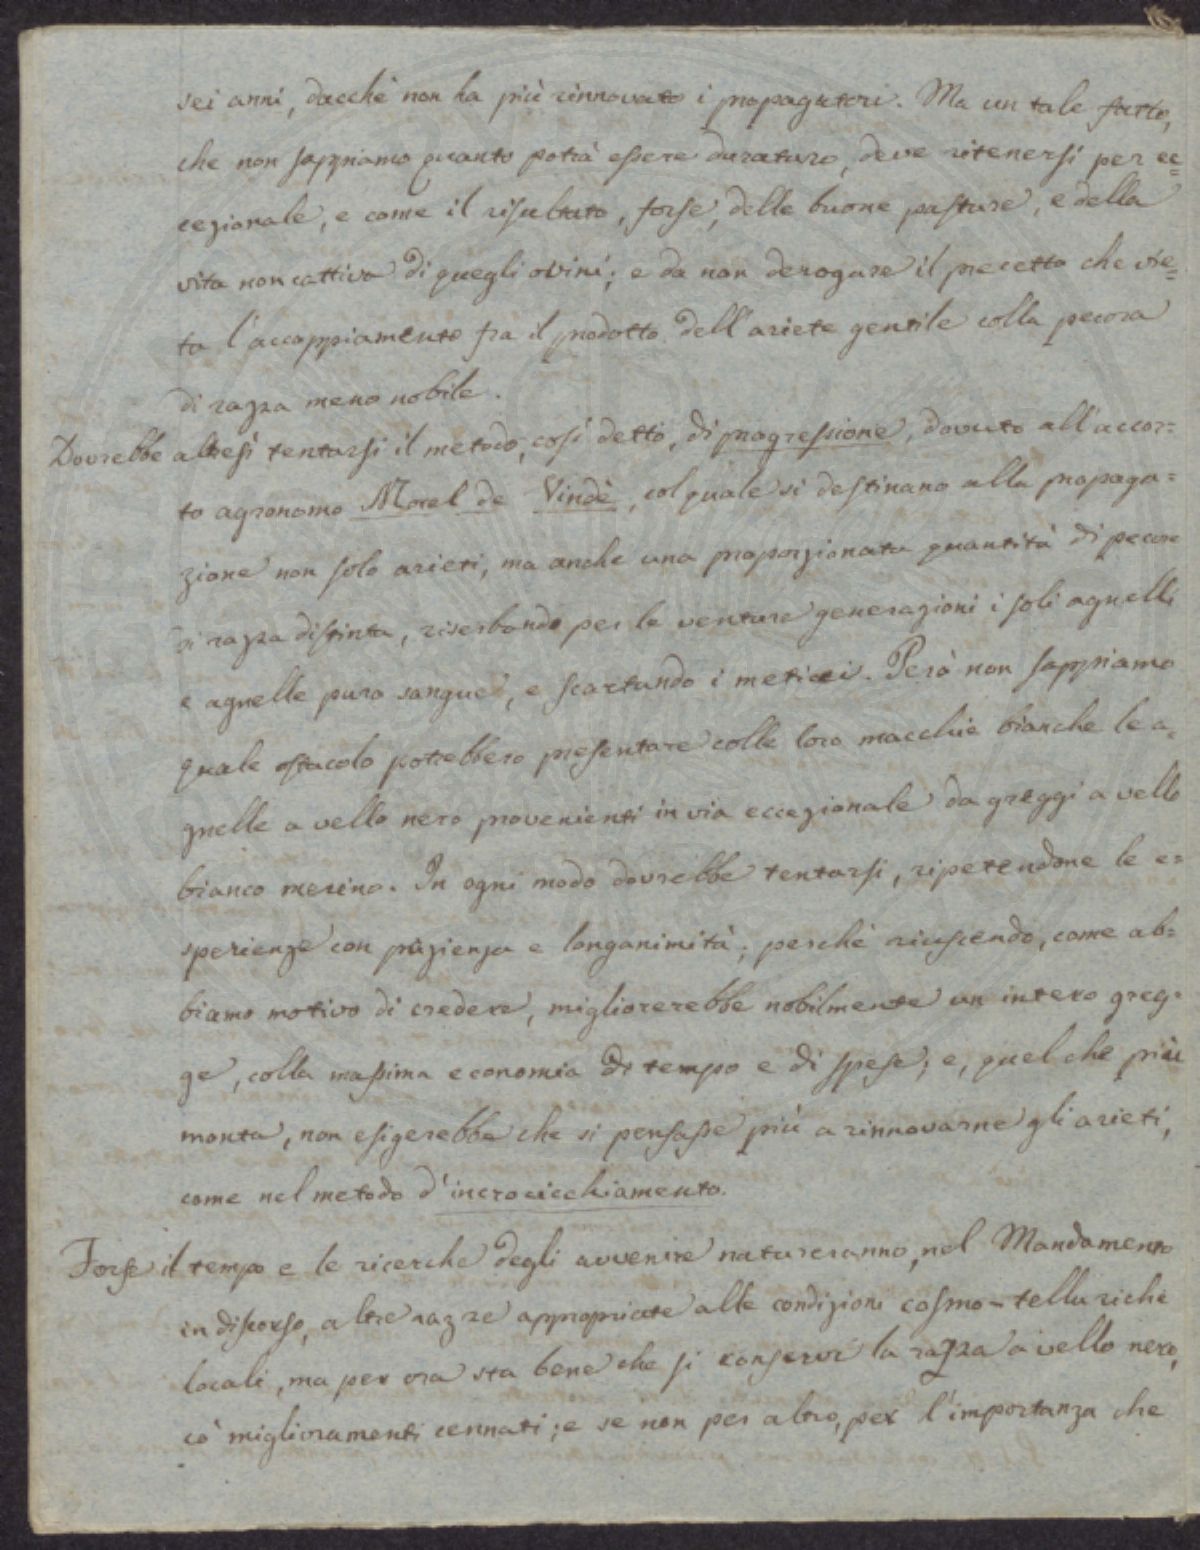 sei anni, dacchè non ha più rinnovato i propagatori. Ma un tale fatto,
che non sappiamo quanto potrà essere duraturo, deve ritenersi per ec=
cezionale, e come il risultato, forse, delle buone pasture, e della
vita non cattiva di quegli ovini; e da non derogare il precetto che vie=
ta l'accoppiamento fra il prodotto dell'ariete gentile colla pecora
di razza meno nobile.
Dovrebbe altresì tentarsi il metodo, così detto, di progressione, dovuto all'accor=
to agronomo Morel de Vindè, col quale si destinano alla propaga=
zione non solo arieti, ma anche una proporzionata quantità di pecore
di razza distinta, riserbando per le venture generazioni i soli agnelli
e agnelle puro sangue, e scartando i meticci. Però non sappiamo
quale ostacolo potrebbero presentare colle loro macchie bianche le a=
gnelle a vello nero provenienti in via eccezionale da greggi a vello
bianco merino. In ogni modo dovrebbe tentarsi, ripetendone le e=
sperienze con pazienza e longanimità; perchè riuscendo, come ab=
biamo motivo di credere, migliorerebbe nobilmente un intero greg=
ge, colla massima economia di tempo e di spese; e, quel che più
monta, non esigerebbe che si pensasse più a rinnovarne gli arieti,
come nel metodo d'incrocicchiamento.
Forse il tempo e le ricerche degli avvenire natureranno, nel Mandamento
in discorso, altre razze appropriate alle condizioni cosmo-telluriche
locali, ma per ora sta bene che si conservi la razza a vello nero,
co' miglioramenti cennati; e se non per altro, per l'importanza che